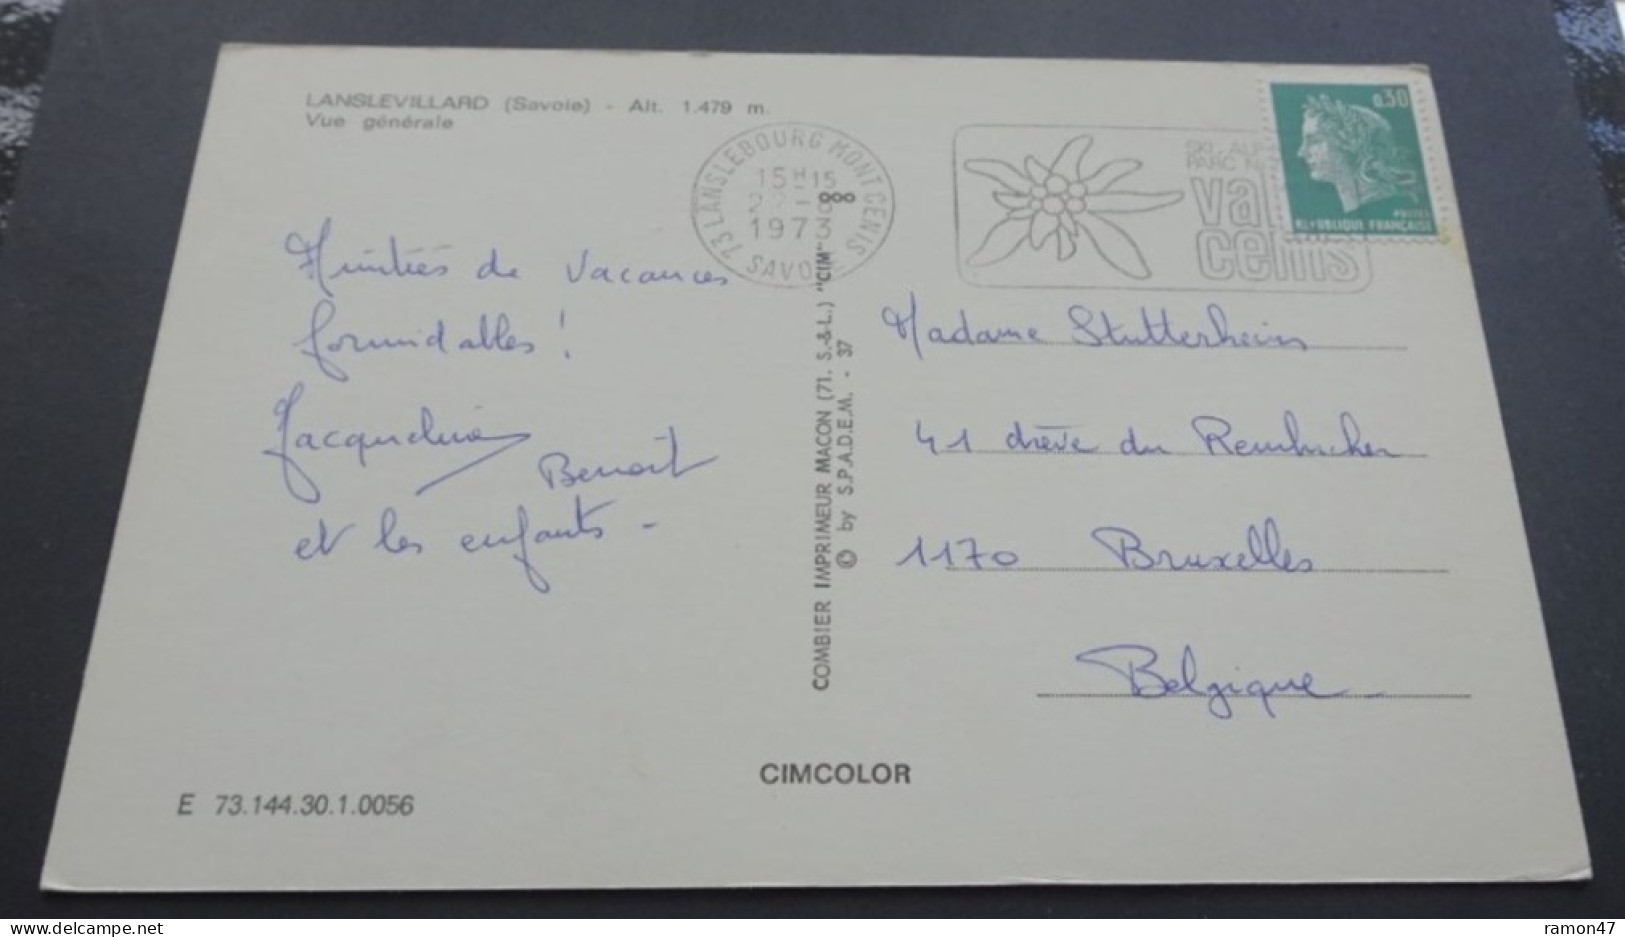 LANSLEVILLARD (Savoie) - Alt. 1.479 m.
Vue générale
73 LANSLEBOURG MONT CENIS
15H15
1973
SAVOIE
SKI
PARC
val
cenis
0,30
POSTES
REPUBLIQUE FRANÇAISE
de vacances
formidables !
Jacqueline
Benoît
et les enfants -
COMBIER IMPRIMEUR MACON (71. S.-&-L.) "CIM"
© by S.P.A.D.E.M. - 37
Madame Stutterheim
41 drève du Rembucher
1170 Bruxelles
Belgique -
CIMCOLOR
E 73.144.30.1.0056
delcampe.net
ramon47